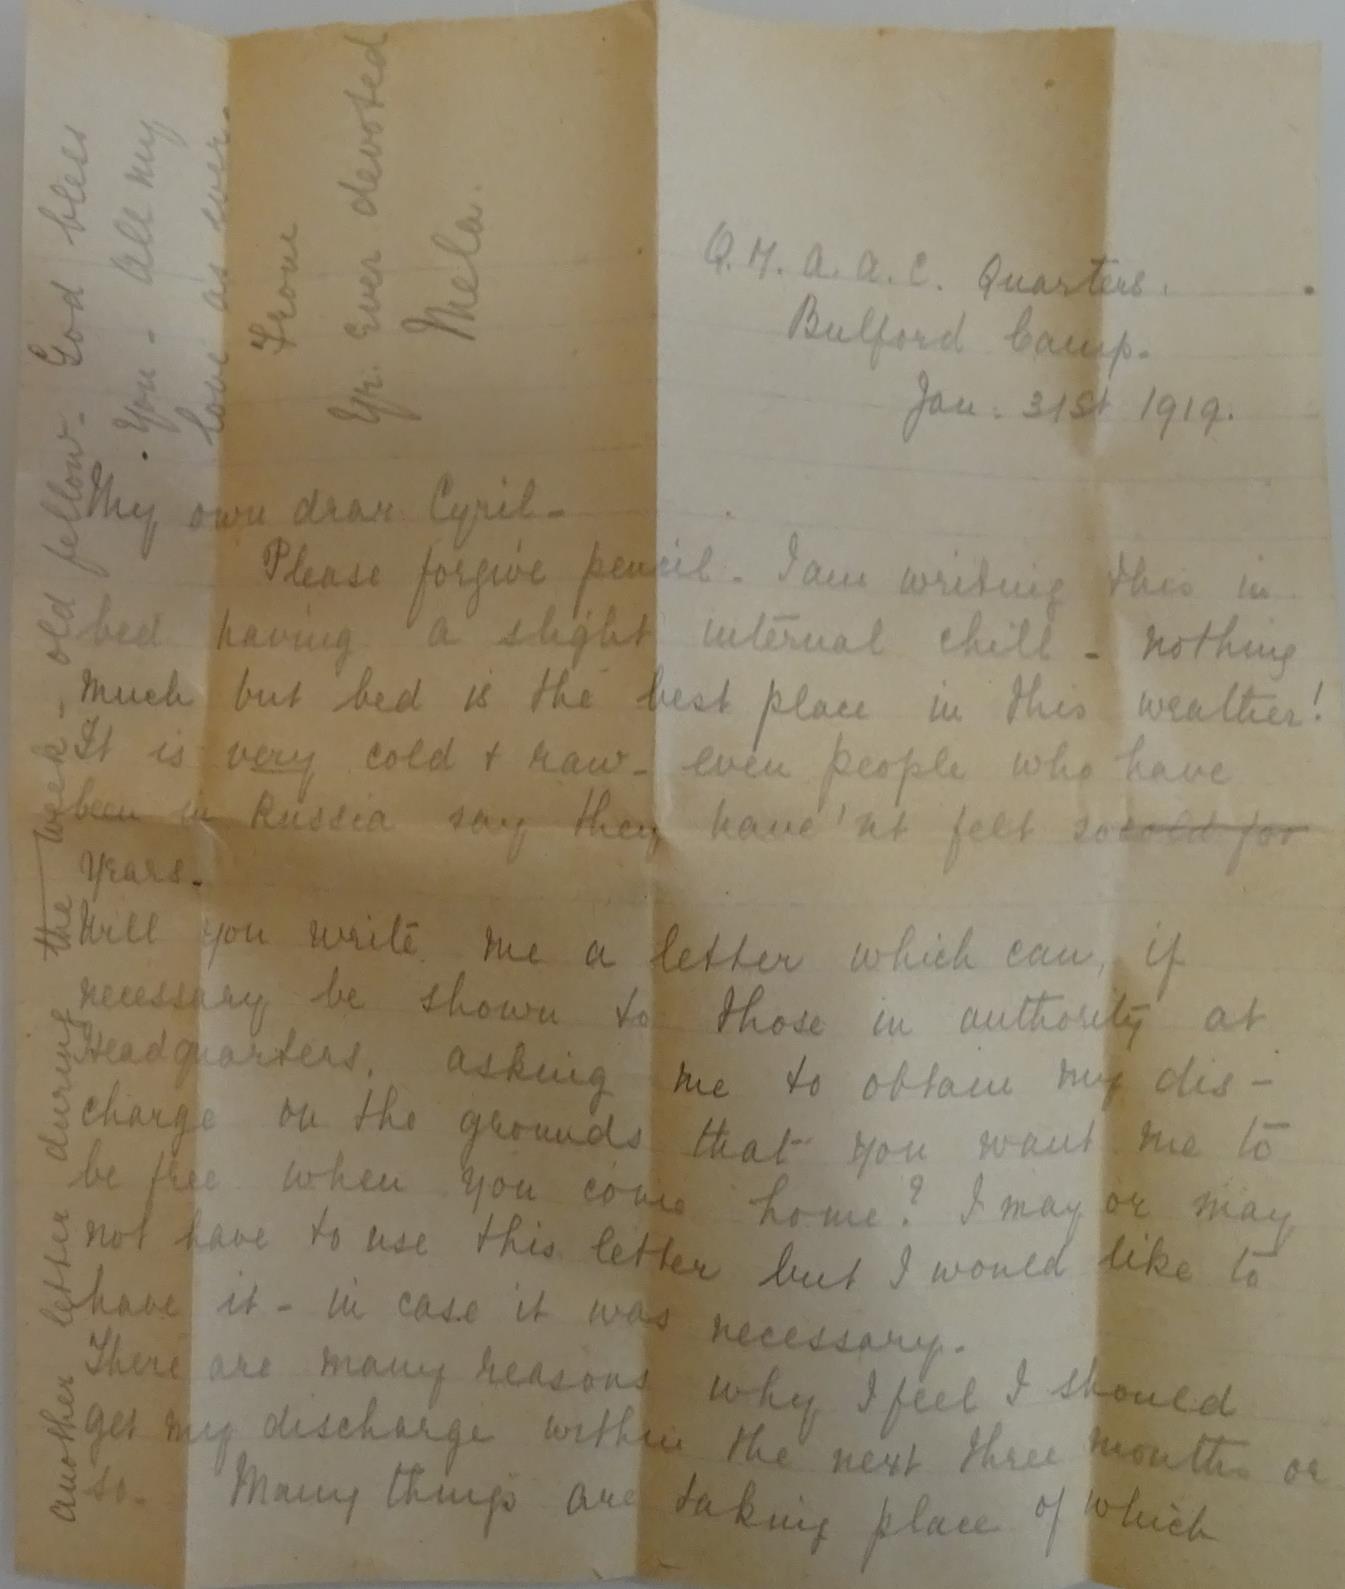 Q.M.A.A.C. Quarters.
Bulford Camp.
Jan. 31st 1919.
My own dear Cyril -
Please forgive pencil - I am writing this in
bed having a slight internal chill - nothing
much but bed is the best place in this weather!
It is very cold + raw - even people who have
been in Russia say they have'nt felt so cold for
years.
Will you write me a letter which can, if
necessary be shown to those in authority at
Headquarters, asking me to obtain my dis-
charge on the grounds that you want me to
be free when you come home? I may or may
not have to use this letter but I would like to
have it - in case it was necessary.
There are many reasons why I feel I should
get my discharge within the next three months or
so. Many things are taking place of which
another letter during the week - old fellow - God bless
you - all my
love as ever.
From
Yr. Ever devoted
Mela.